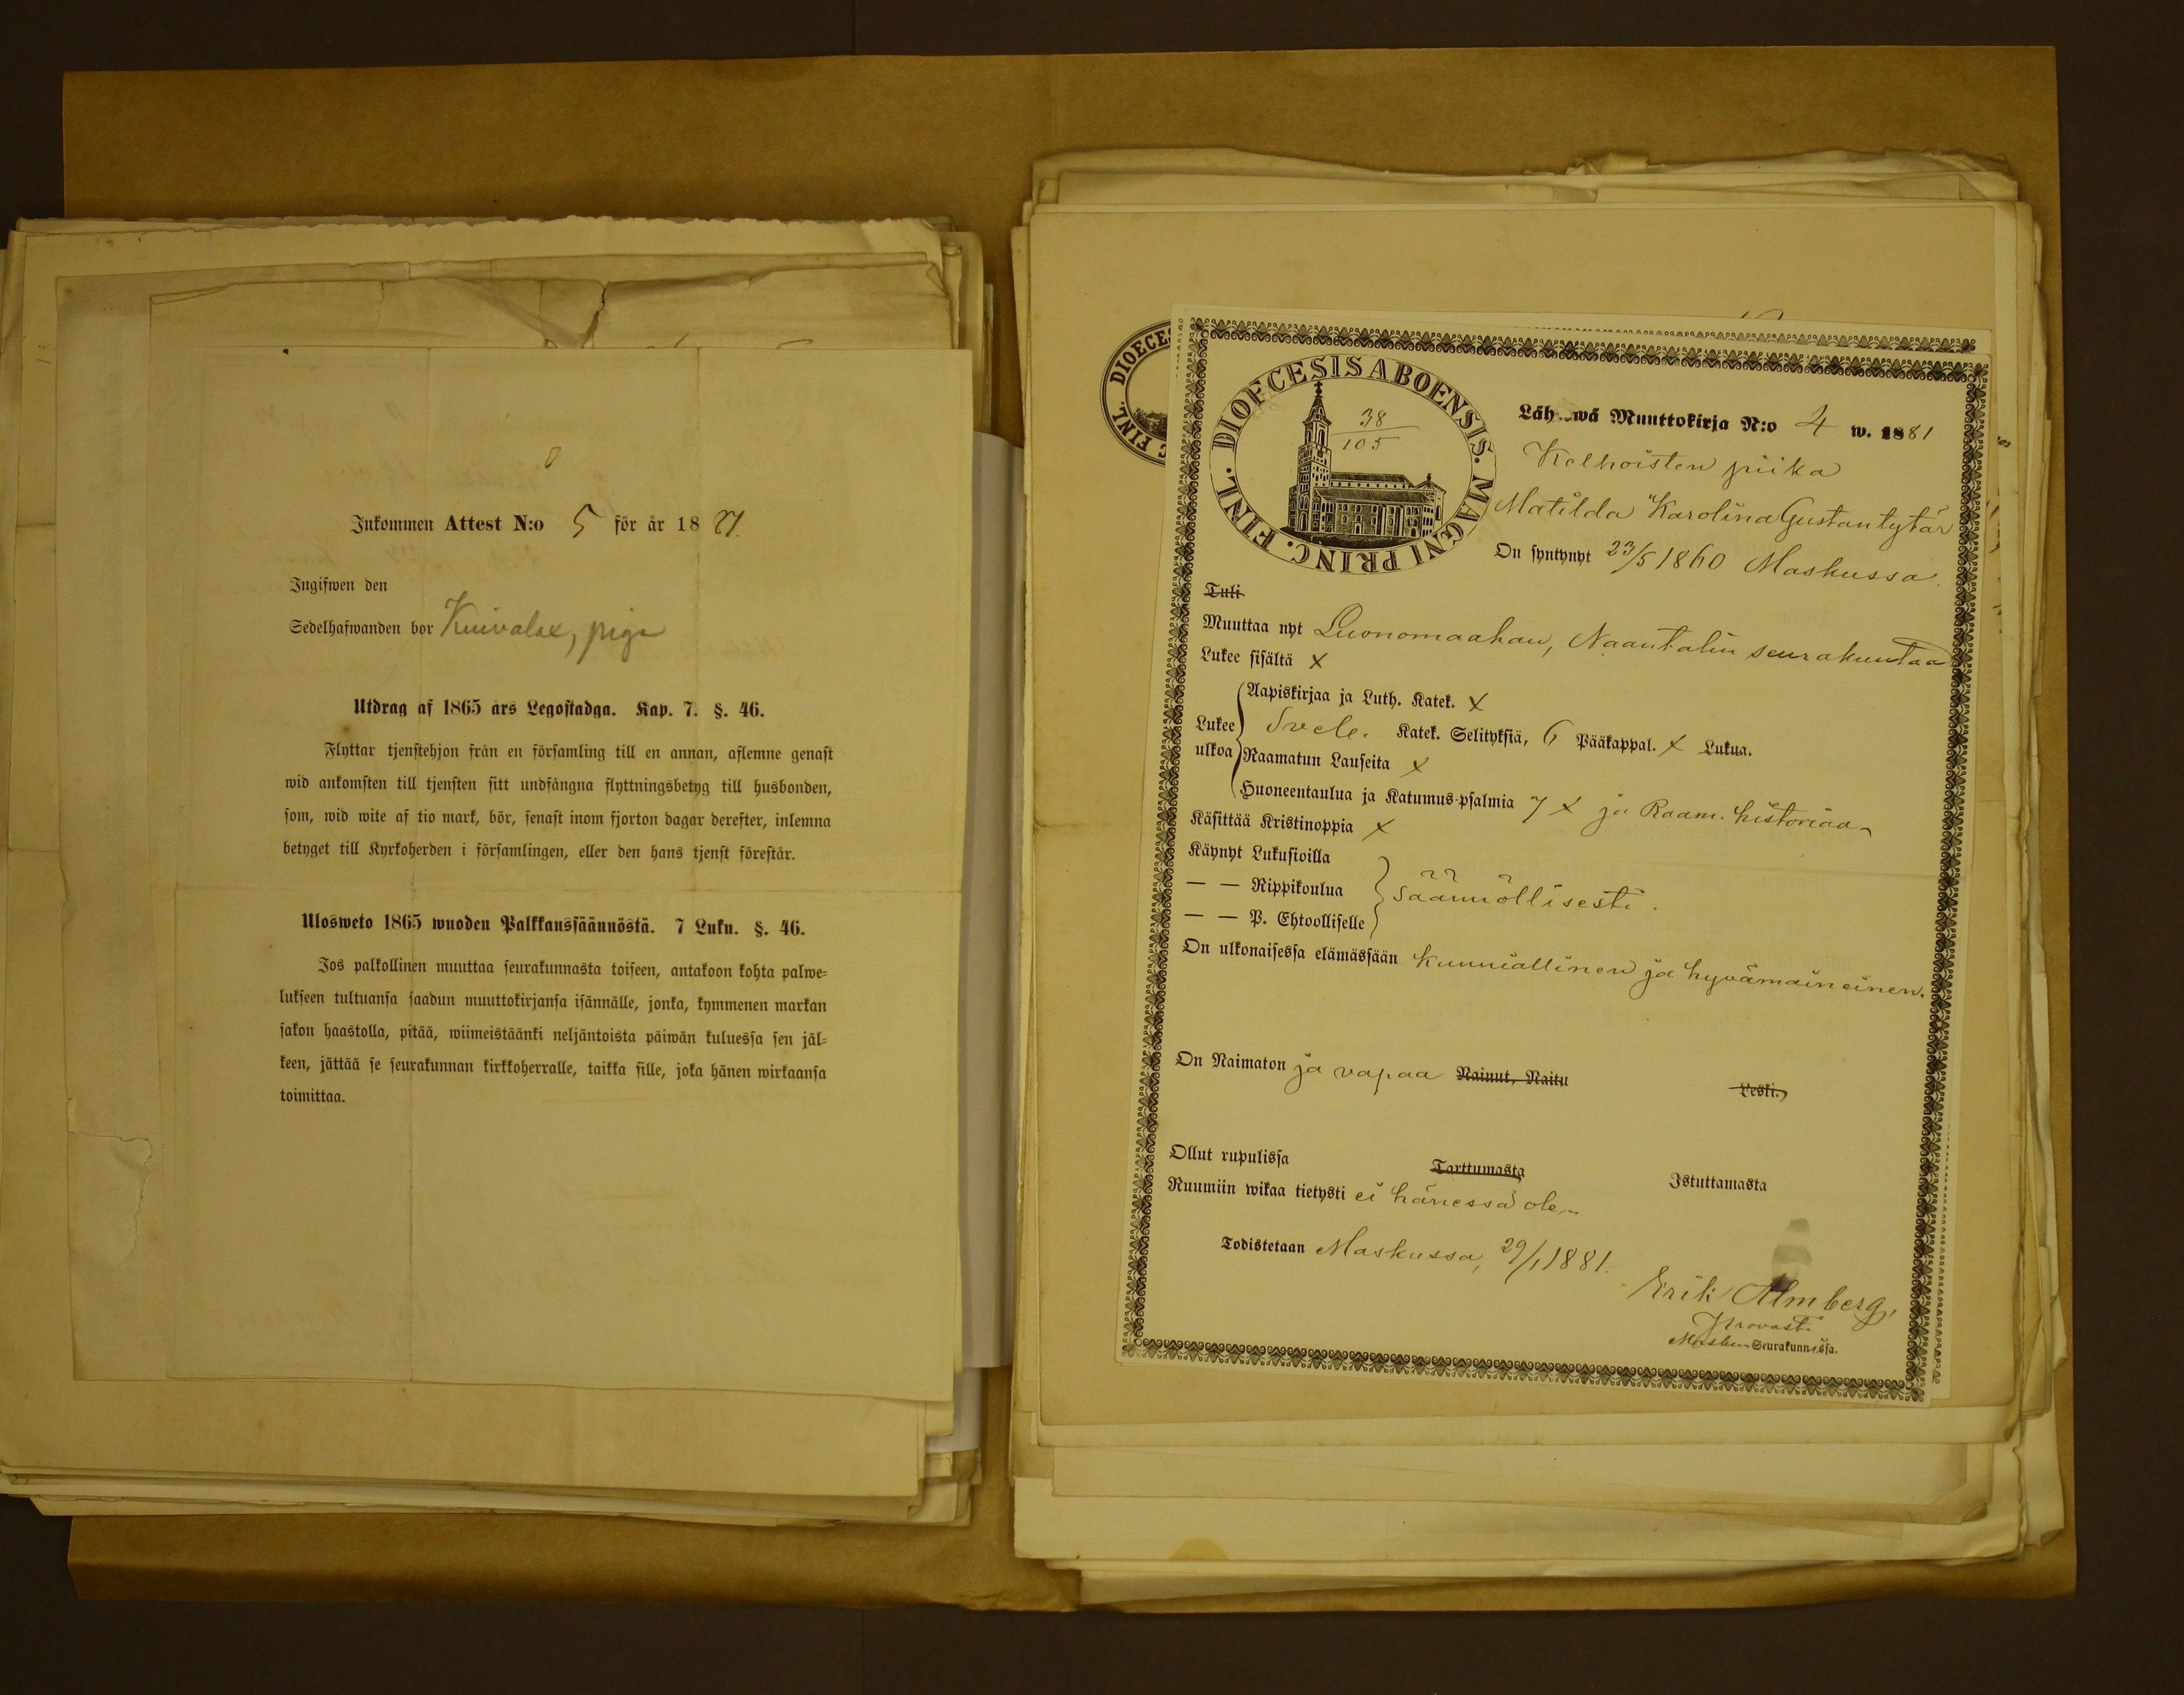 Inkommen Attest N:o 5 för år 1881.
Ingifwen den
Sedelhafwanden bor Kuivalax, piga
Utdrag af 1865 års Legostadga. Kap. 7. §. 46.
Flyttar tjenstehjon från en församling till en annan, aflemne genast
wid ankomsten till tjensten sitt undfångna flyttningsbetyg till husbonden,
som, wid wite af tio mark, bör, senast inom fjorton dagar derefter, inlemna
betyget till Kyrkoherden i församlingen, eller den hans tjenst förestår.
Ulosweto 1865 wuoden Palkkanssäännöstä. 7 Luku. §. 46.
Jos palkollinen muuttaa seurakunnasta toiseen, antakoon kohta palwe-
lukseen tultuansa saadun muuttokirjansa isännälle, jonka, kymmenen markan
sakon haastolla, pitää, wiimeistäänki neljäntoista päiwän kuluessa sen jäl-
keen, jättää se seurakunnan kirkkoherralle, taikka sille, joka hänen wirkaansa
toimittaa.
DIOECESIS ABOENSIS. MAGNI PRINC. FINL.
38
105
Läh wä Muuttokirja N:o 4 w. 1881
Kelhoisten piika
Matilda Karolina Gustantytär
On syntynyt 23/5 1860 Maskussa.
Tuli
Muuttaa nyt Luonomaahan, Naantalin seurakuntaa
Lukee sisältä x
Lukee ulkoa
Aapiskirjaa ja Luth. Katek. x
Svele. Katek. Selityksiä, 6 Pääkappal. x Lukua.
Raamatun Lauseita x
Huoneentaulua ja Katumus-psalmia 7 x ja Raam. historiaa
Käsittää Kristinoppia x
Käynyt Lukusioilla
— — Rippikoulua säännöllisesti.
— — P. Ehtoolliselle
On ulkonaisessa elämässään kunniallinen ja hyvämaineinen.
On Naimaton ja vapaa Nainut, Naitu Leski.
Ollut rupulissa Tarttumasta Istuttamasta
Ruumiin wikaa tietysti ei hänessä ole
Todistetaan Maskussa, 29/1 1881.
Erik Almberg,
Provasti
Maskun Seurakunnassa.